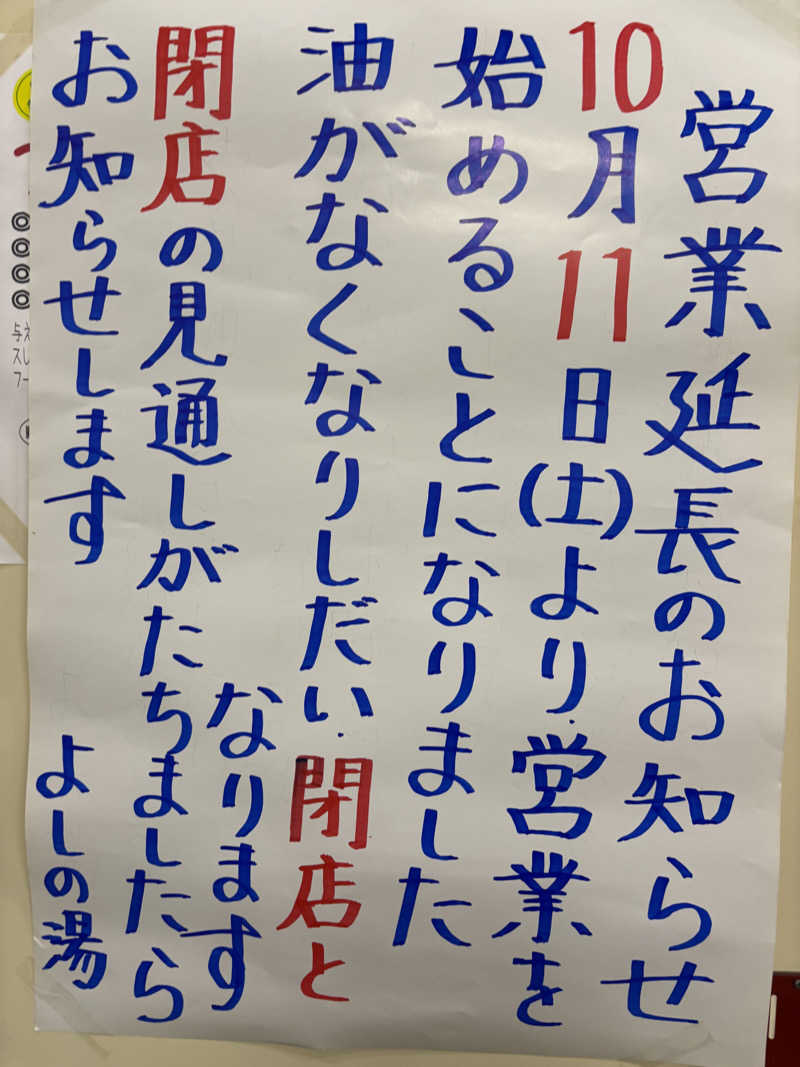 営業延長のお知らせ
10月11日(土)より営業を
始めることになりました
油がなくなりしだい閉店と
なります
閉店の見通しがたちましたら
お知らせします
よしの湯